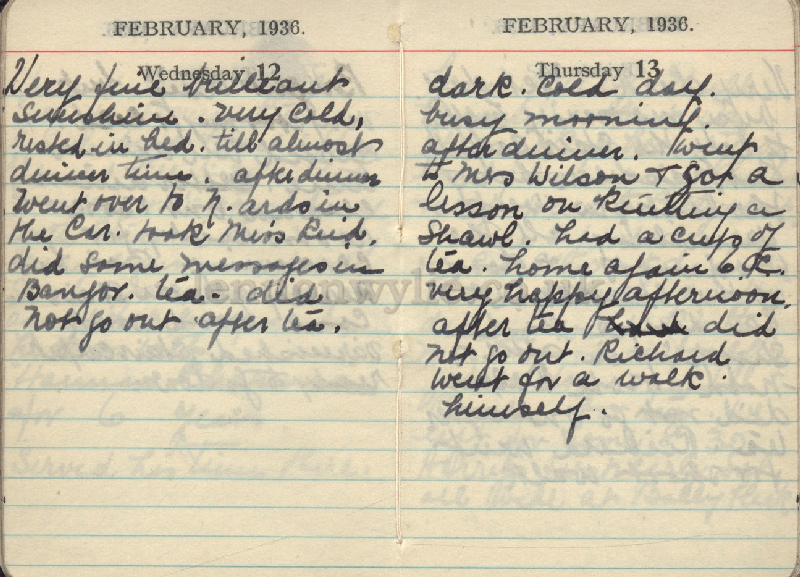 FEBRUARY, 1936.
Wednesday 12
Very fine brilliant
Sunshine. very cold,
rested in bed. till almost
dinner time. after dinner
Went over to N. ards in
the Car. took Miss Reid.
did some messages in
Bangor. tea. did
not go out after tea.
FEBRUARY, 1936.
Thursday 13
dark. cold day.
busy morning.
after dinner. went
to Mrs Wilson & got a
lesson on knitting a
Shawl. had a cup of
tea. home again 6 C.
very happy afternoon.
after tea did
not go out. Richard
went for a walk
himself.